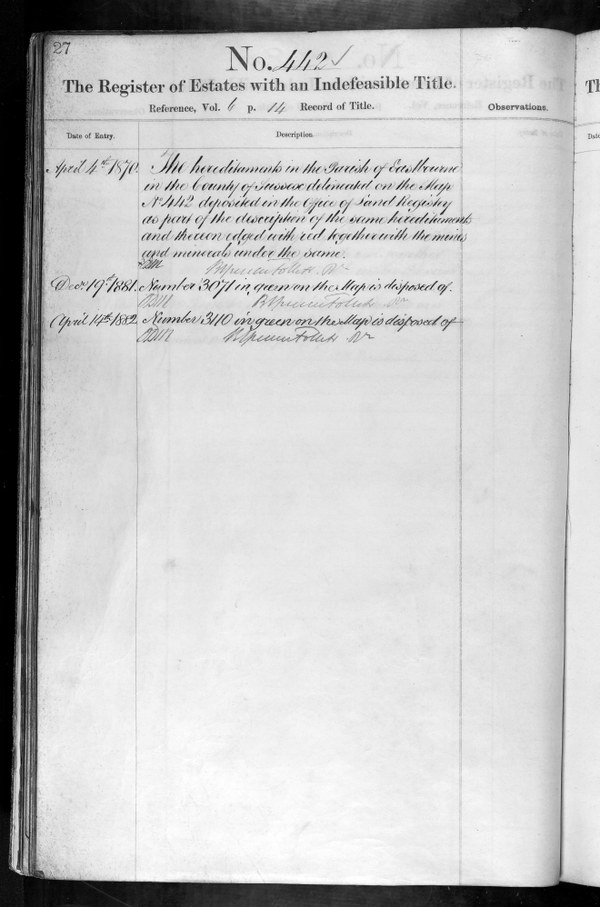 27
No. 442
The Register of Estates with an Indefeasible Title.
Reference, Vol. 6 p. 14 Record of Title.
Observations.
Date of Entry.
Description.
April 4th 1870. The hereditaments in the Parish of Eastbourne
in the County of Sussex delineated on the Map
No 442 deposited in the Office of Land Registry
as part of the description of the same hereditaments
and thereon edged with red together with the mines
and minerals under the same.
Decr 19th 1881. Number 3071 in green on the Map is disposed of.
April 14th 1882 Number 3110 in green on the Map is disposed of